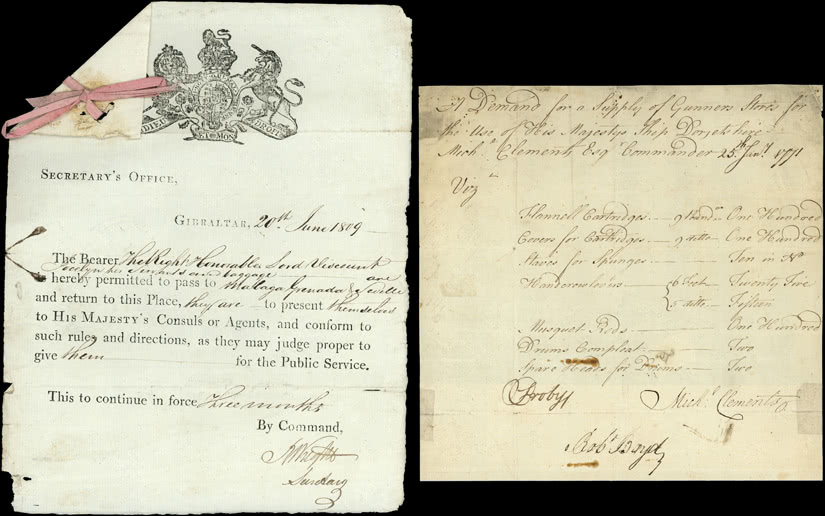 DIEU
ET MON
DROIT
SECRETARY'S OFFICE,
GIBRALTAR, 20th June 1809
The Bearer The Right Honorable Lord Viscount
Jocelyn his Servants and baggage are
hereby permitted to pass to Mallaga Grenada & Seville
and return to this Place, they are to present themselves
to HIS MAJESTY'S Consuls or Agents, and conform to
such rules and directions, as they may judge proper to
give them for the Public Service.
This to continue in force Three months
By Command,
RWright
Secretary
A Demand for a Supply of Gunners Stores for
the Use of His Majestys Ship Dorsetshire
Michl Clements Esqr Commander 25th Jany 1771
Viz
Flannell Cartridges 9 Pound One Hundred
Covers for Cartridges 9 ditto One Hundred
Staves for Spunges Ten in No
6 Feet Twenty Five
5 ditto Fifteen
Musquet Rods One Hundred
Drums Compleat Two
Spare Heads for Drums Two
CProby Michl Clements
Robt Boyd